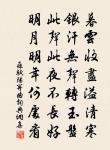 暮雲收盡溢清寒
銀汗無聲轉玉盤
此生此夜不長好
明月明年何處看
蘇軾陽關曲詞典調集